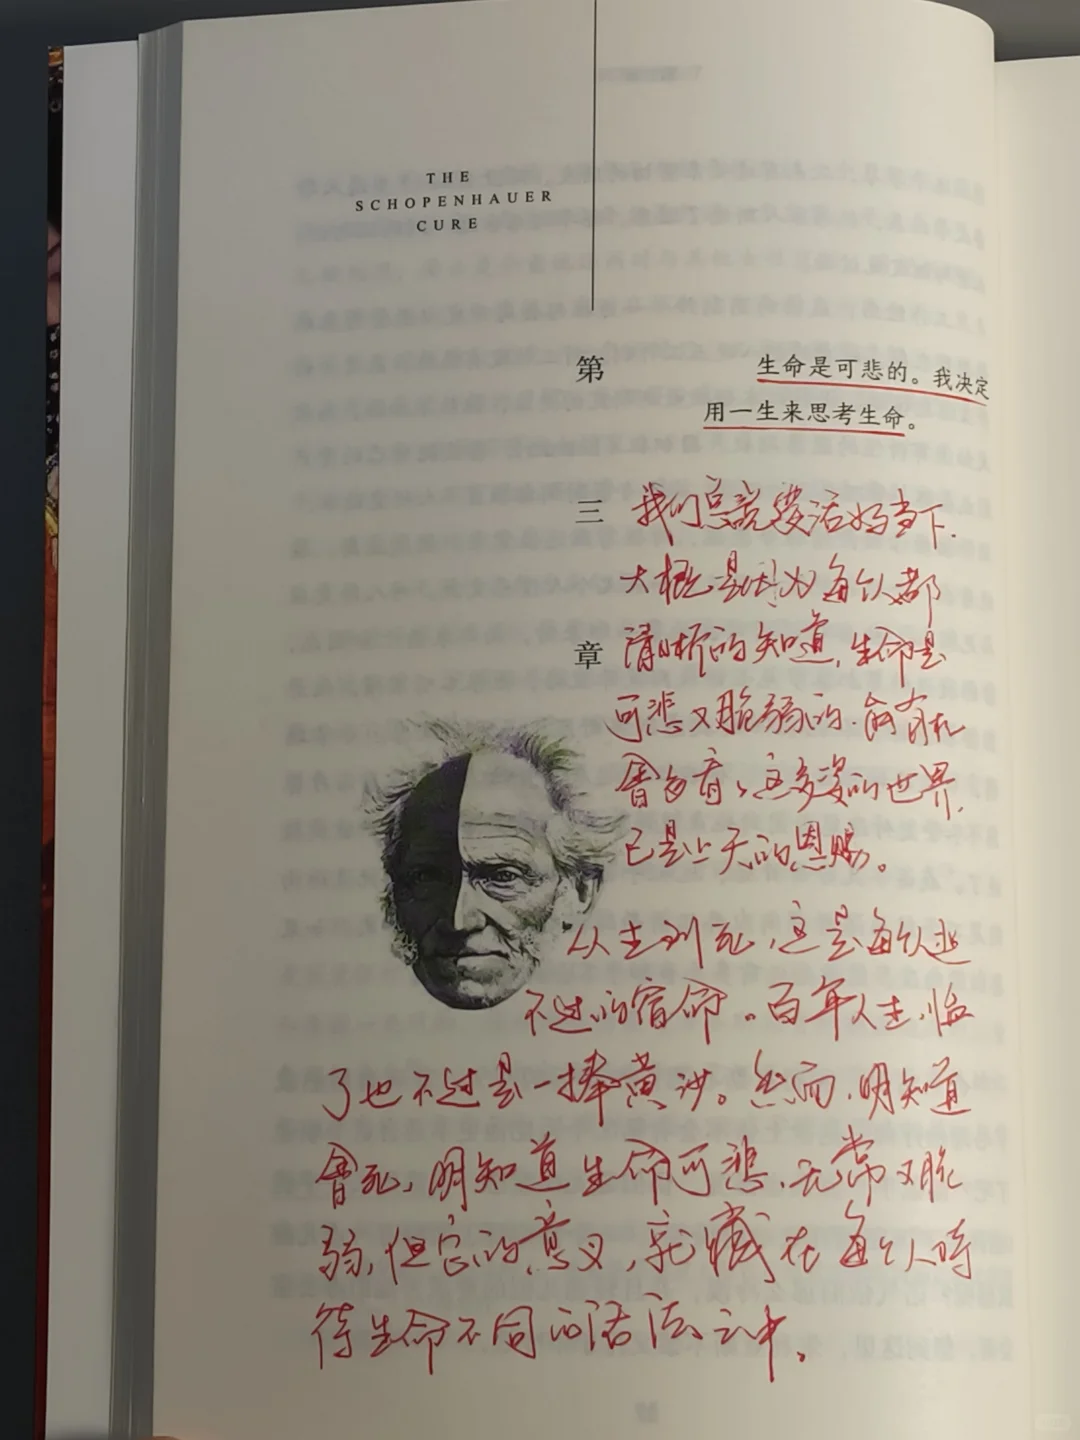 THE
SCHOPENHAUER
CURE
第
三
章
生命是可悲的。我决定
用一生来思考生命。
我们总说要活好当下.
大概是因为每个人都
清晰的知道,生命是
可悲又脆弱的.能有机
會多看看这多姿的世界,
已是上天的恩赐。
从生到死,这是每个人逃
不过的宿命。百年人生,临
了也不过是一捧黄沙。然而,明知道
會死,明知道生命可悲,无常又脆
弱,但它的意义,就藏在每个人对
待生命不同的活法之中。